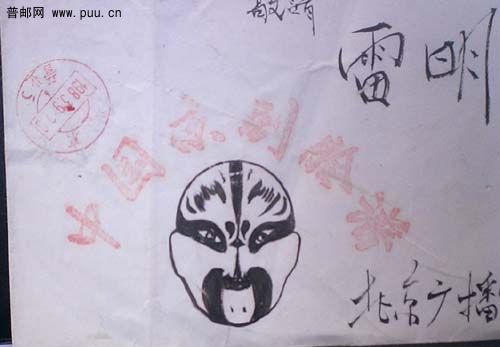 普邮网 www.puu.cn
敬请
雷明
中国京剧脸谱
北京广播